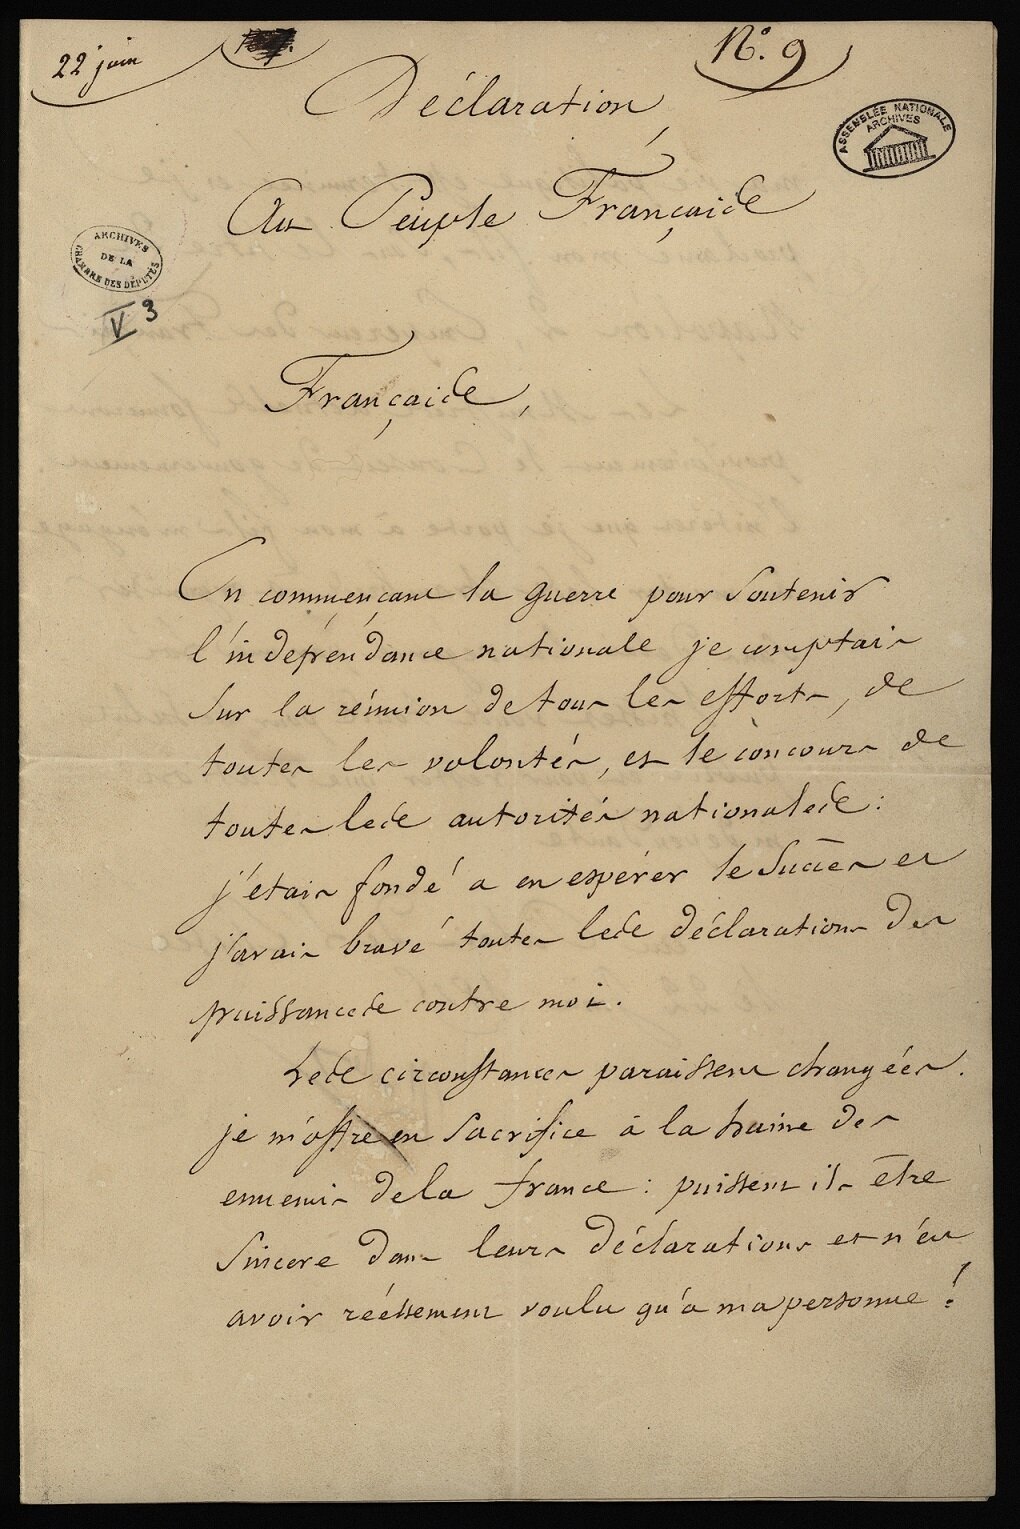 22 juin
N.° 9
Déclaration
Au Peuple Français
ASSEMBLÉE NATIONALE
ARCHIVES
ARCHIVES
DE LA
CHAMBRE DES DÉPUTÉS
V 3
Français,
En commençant la guerre pour soutenir
l'indépendance nationale je comptais
sur la réunion de tous les efforts, de
toutes les volontés, et le concours de
toutes les autorités nationales :
j'étais fondé a en espérer le succès et
j'avais bravé toutes les déclarations des
puissances contre moi.
Les circonstances paraissent changées.
je m'offre en sacrifice à la haine des
ennemis de la france : puissent ils être
sincere dans leurs déclarations et n'en
avoir réellement voulu qu'a ma personne !